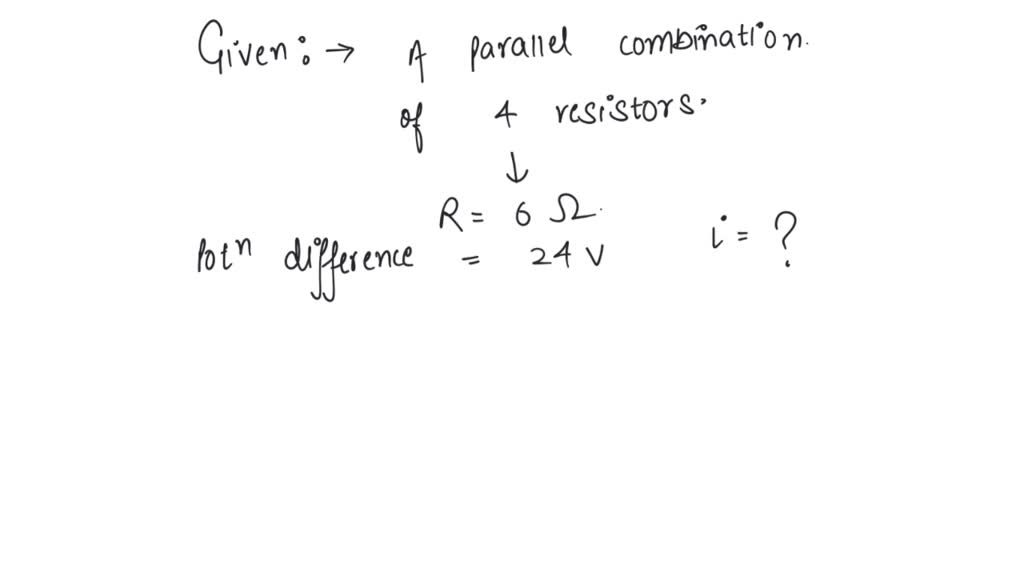 Given: → A parallel combination.
of 4 resistors.
↓
R = 6 Ω.
potⁿ difference = 24 V
i = ?